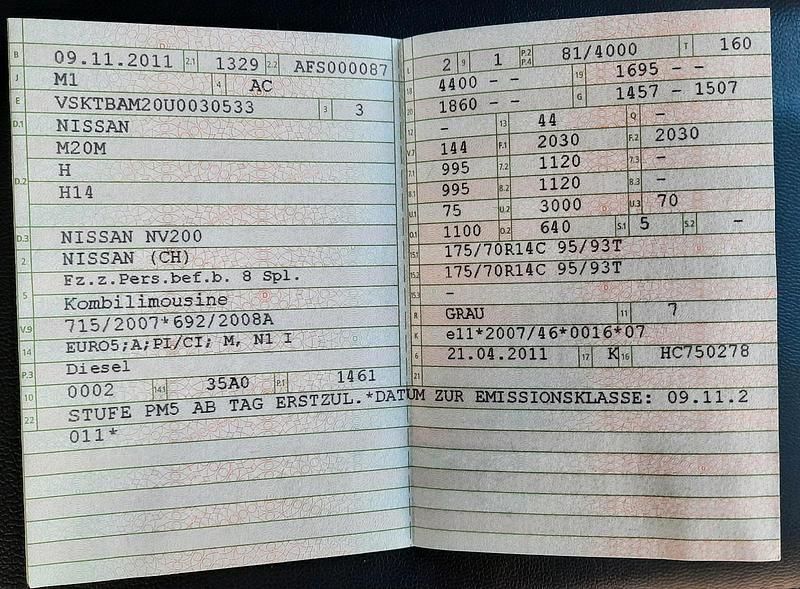 B 09.11.2011 2.1 1329 2.2 AFS000087
J M1 4 AC
E VSKTBAM20U0030533 3 3
D.1 NISSAN
M20M
D.2 H
H14
D.3 NISSAN NV200
2 NISSAN (CH)
Fz.z.Pers.bef.b. 8 Spl.
5 Kombilimousine
V.9 715/2007*692/2008A
14 EURO5;A;PI/CI; M, N1 I
P.3 Diesel
10 0002 14.1 35A0 P.1 1461
22 STUFE PM5 AB TAG ERSTZUL.*DATUM ZUR EMISSIONSKLASSE: 09.11.2
011*
L 2 9 1 P.2 P.4 81/4000 T 160
18 4400 - - 19 1695 - -
20 1860 - - G 1457 - 1507
12 - 13 44 Q -
V.7 144 F.1 2030 F.2 2030
7.1 995 7.2 1120 7.3 -
8.1 995 8.2 1120 8.3 -
U.1 75 U.2 3000 U.3 70
O.1 1100 O.2 640 S.1 5 S.2 -
15.1 175/70R14C 95/93T
15.2 175/70R14C 95/93T
15.3 -
R GRAU 11 7
K e11*2007/46*0016*07
6 21.04.2011 17 K 16 HC750278
21